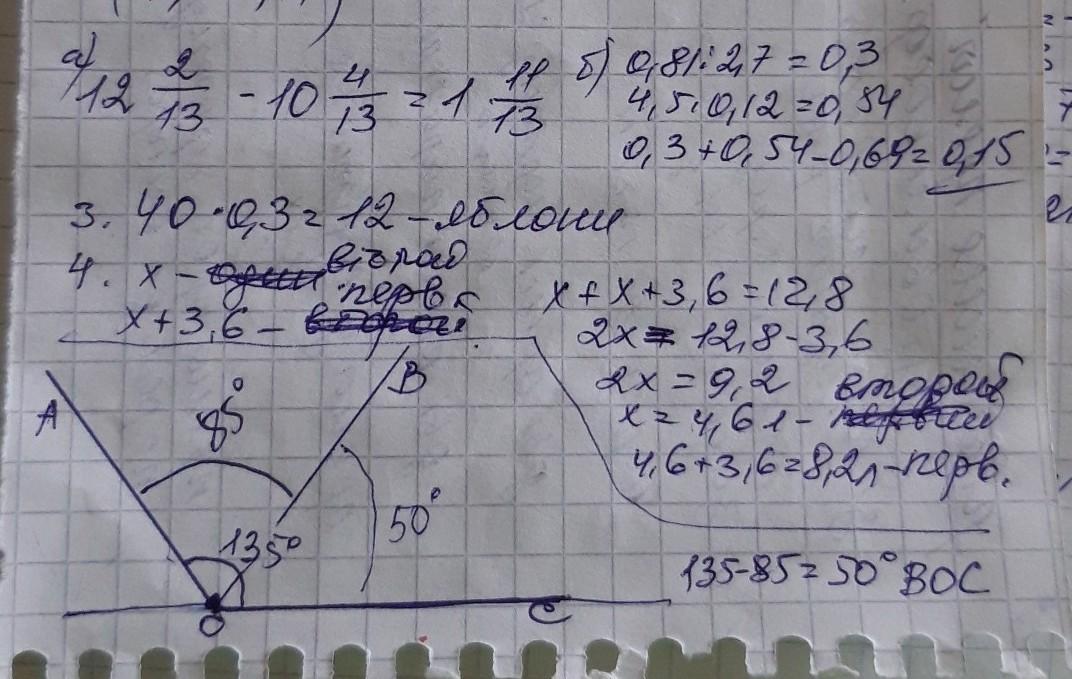 а) 12 2/13 - 10 4/13 = 1 11/13
б) 0,81:2,7 = 0,3
4,5·0,12 = 0,54
0,3+0,54-0,69=0,15
3. 40·0,3=12 - яблони
4. x - второй
x+3,6 - перв.
x+x+3,6=12,8
2x = 12,8-3,6
2x = 9,2
x = 4,6 л - второй
4,6+3,6=8,2л-перв.
A
85°
B
135°
50°
O
C
135-85=50° BOC